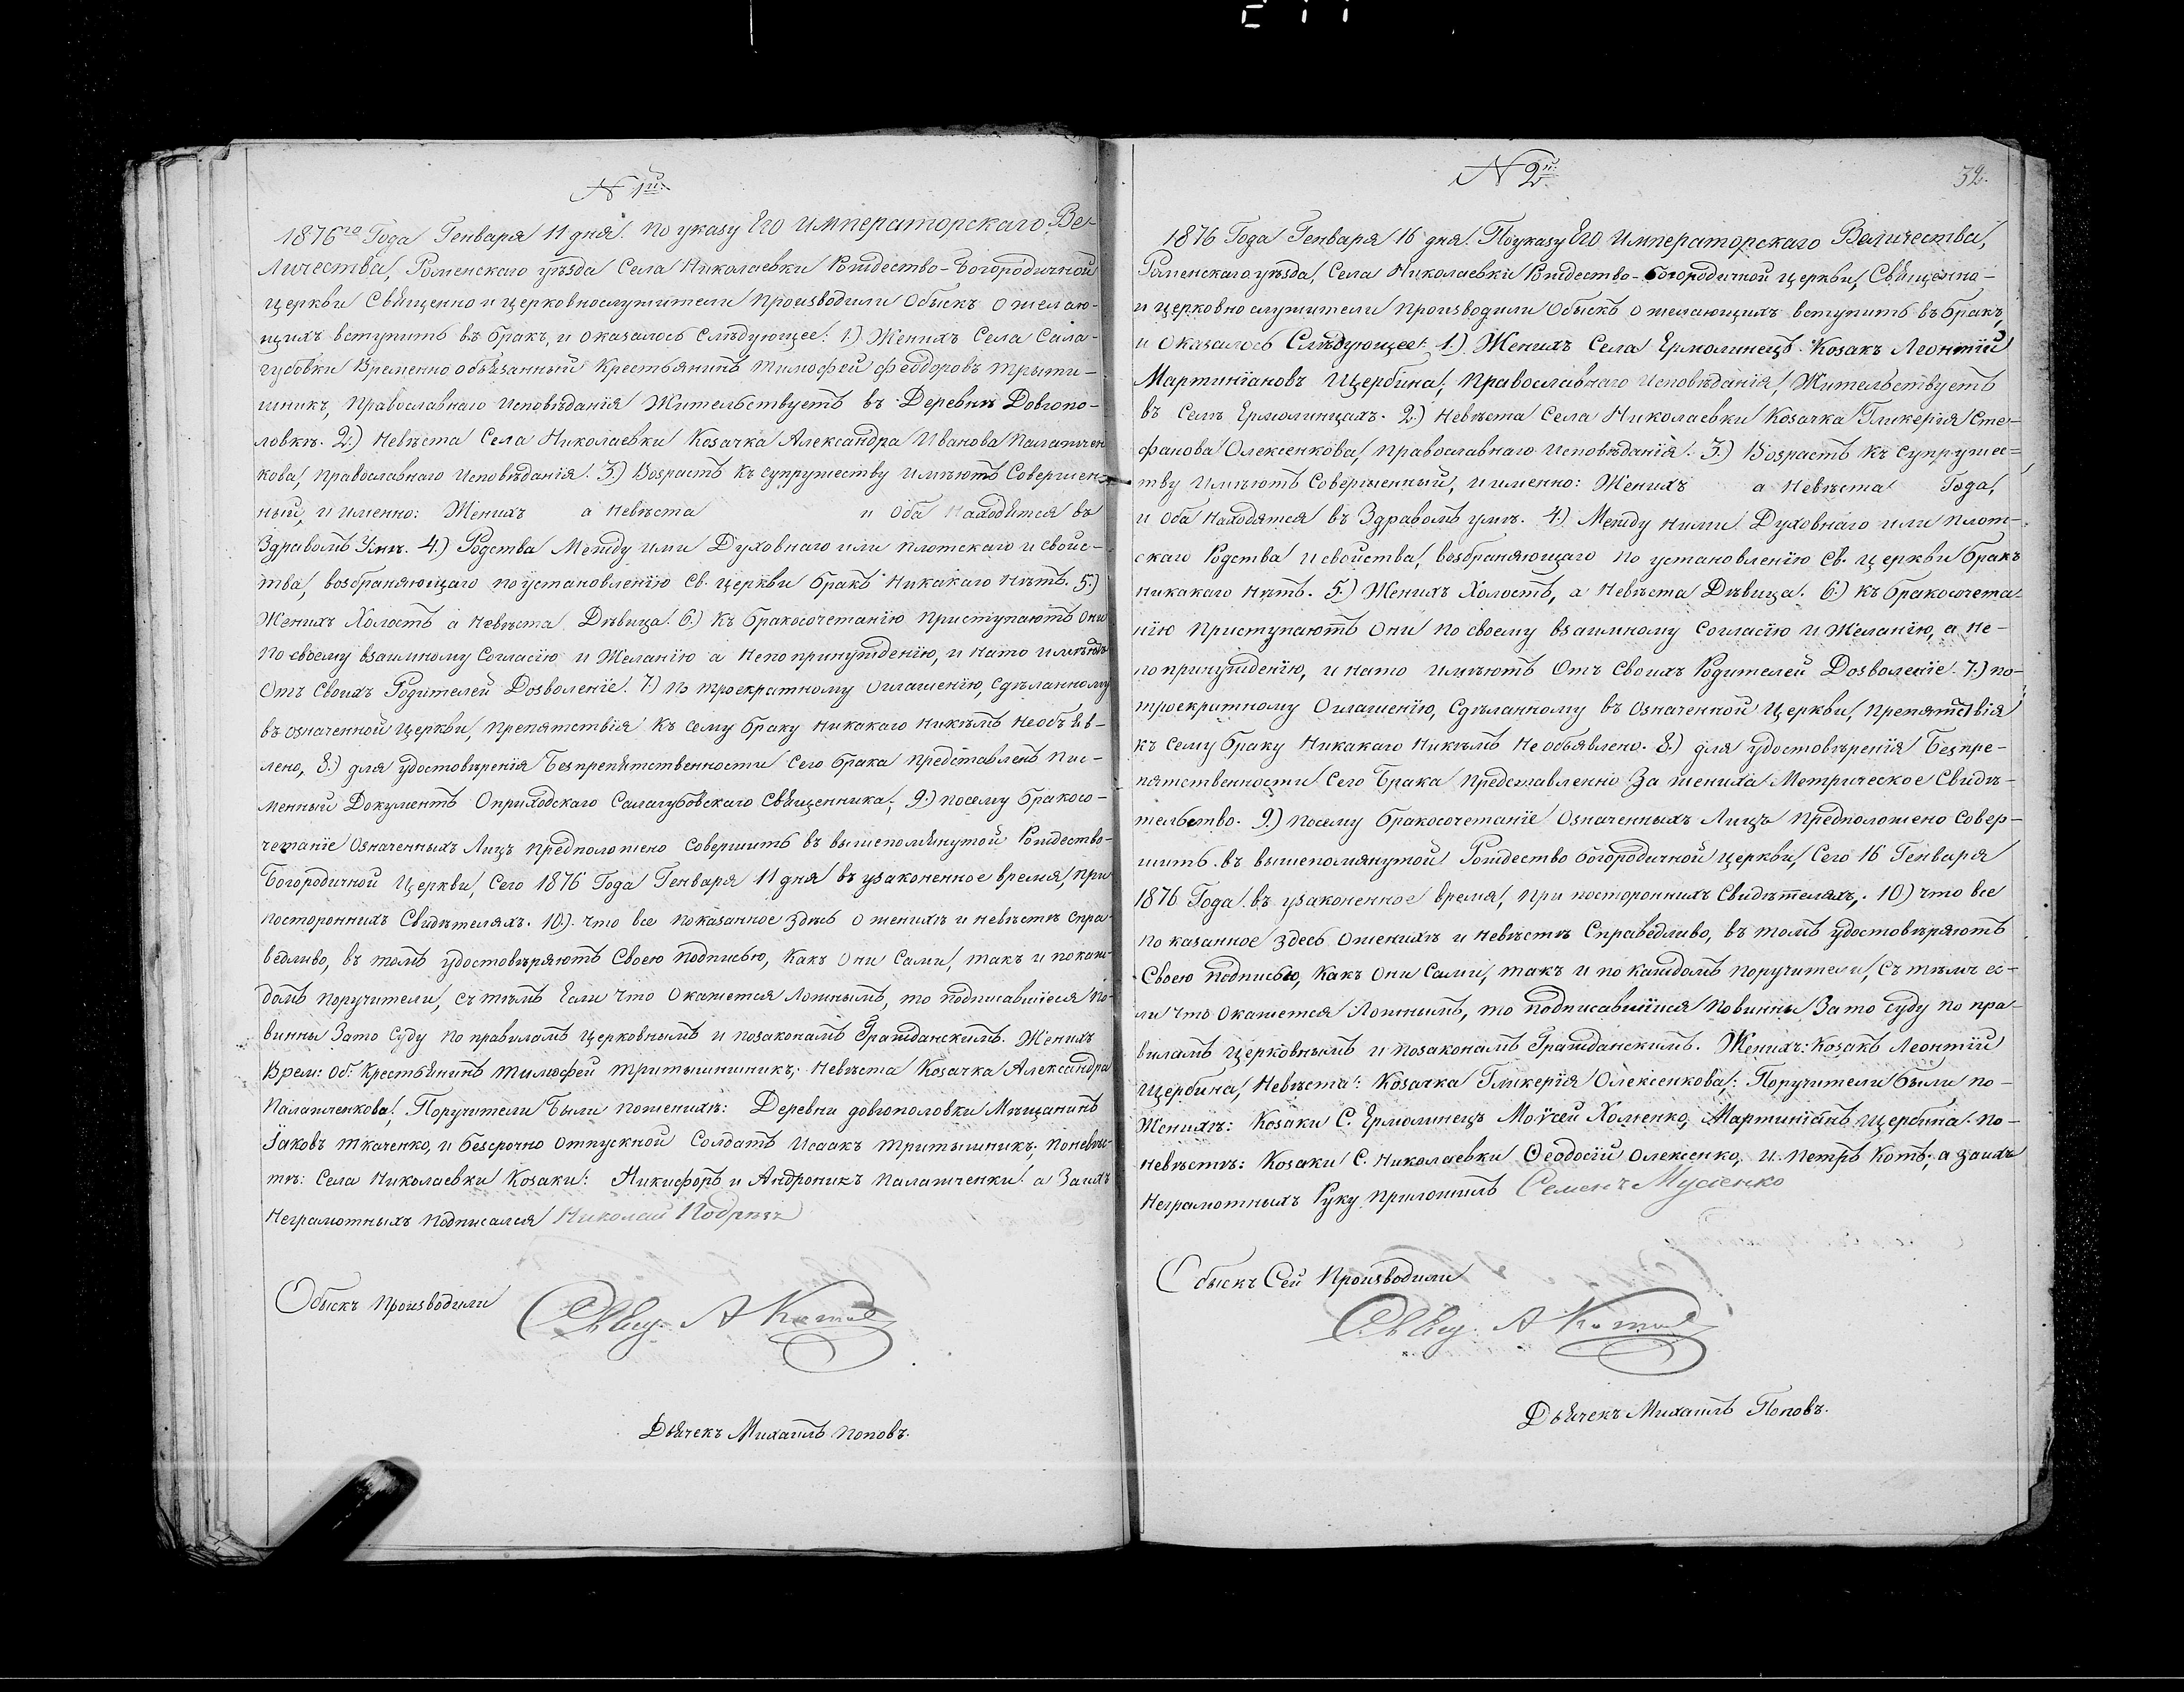 N 1й.
1876го Года Генваря 11 дня. по указу Его Императорскаго Ве-
личества, Роменскаго уѣзда Села Николаевки Рождество-Богородичной
церкви Священно и церковнослужители производили Обыскъ о желаю-
щихъ вступить въ бракъ, и оказалось Слѣдующее: 1.) Женихъ Села Сала-
губовки Временно обязанный Крестьянинъ Тимофей Феодоровъ Трыти-
шникъ, православнаго исповѣданія Жительствуетъ въ Деревни Довгопо-
ловкѣ. 2.) Невѣста Села Николаевки Козачка Александра Иванова Палатчен
кова, православнаго исповѣданія. 3.) Возрастъ къ супружеству имѣютъ Совершен-
ный, и именно: Женихъ а невѣста и Оба находятся въ
Здравомъ Умѣ. 4.) Родства Между ими Духовнаго или плотскаго и свойс-
тва, возбраняющаго по установленію Св. церкви бракъ никакаго нѣтъ. 5.)
Женихъ Холостъ а невѣста Дѣвица. 6.) Къ бракосочетанію приступаютъ они
по своему взаимному Согласію и Желанію а непопринужденію, и нато имѣютъ
Отъ своихъ Родителей Дозволеніе. 7.) По троекратному Оглашенію, сдѣланному
въ означенной церкви, препятствія къ сему браку никакаго никѣмъ необъяв-
лено, 8.) для удостовѣренія Безпрепятственности Сего брака представленъ пис-
менный Документъ Оприходскаго Салагубовскаго Священника; 9.) посему бракосо-
четаніе Означенныхъ Лицъ предположено Совершить въ вышепомянутой Рождество-
Богородичной Церкви, Сего 1876 Года Генваря 11 дня въ узаконенное время, при
постороннихъ Свидѣтеляхъ. 10.) что все показанное здѣсь о женихѣ и невѣстѣ спра-
ведливо, въ томъ удостовѣряютъ Своею подписью, какъ Они Сами, такъ и покаж-
домъ поручители, съ тѣмъ Если что Окажется Ложнымъ, то подписавшіеся По-
винны Зато Суду по правиламъ Церковнымъ и позаконамъ Гражданскимъ. Женихъ
Врем: Об: Крестьянинъ Тимофей Тритышникъ; невѣста Козачка Александра
Палатченкова, Поручители были поженихѣ: Деревни довгополовки Мѣщанинъ
Іаковъ Ткаченко, и безсрочно отпускной Солдатъ Исаакъ Тритышникъ; поневѣс-
тѣ: Села Николаевки Козаки: Никифоръ и Андроникъ Палатченки. а Заихъ
Неграмотныхъ подписался Николай
Обыскъ Производили
Свящ. А
Дьячекъ Михаилъ Поповъ.
N 2й.
32.
1876 Года Генваря 16 дня. Поуказу Его Императорскаго Величества,
Роменскаго уѣзда, Села Николаевки Рождество-Богородичной церкви, Священно-
и церковно служители производили Обыскъ о желающихъ вступить въ бракъ,
и оказалось Слѣдующее: 1.) Женихъ Села Ермолинецъ Козакъ Леонтій
Мартиніановъ Щербина, православнаго исповѣданія, Жительствуетъ
въ Селѣ Ермолинцахъ. 2.) невѣста Села Николаевки Козачка Гликерія Сте-
фанова Олексенкова, православнаго исповѣданія. 3.) Возрастъ къ Супружес-
тву имѣютъ Совершенный, и именно: Женихъ а невѣста Года,
и Оба находятся въ Здравомъ умѣ. 4.) Между ними Духовнаго или плот-
скаго Родства и свойства, возбраняющаго по установленію Св. церкви бракъ
никакаго нѣтъ. 5.) Женихъ Холостъ, а невѣста Дѣвица. 6.) Къ бракосочета-
нію приступаютъ Они по своему взаимному согласію и Желанію, а не-
попринужденію, и нато имѣютъ Отъ своихъ Родителей Дозволеніе. 7.) по-
троекратному Оглашенію, сдѣланному въ означенной церкви, препятствія
къ сему браку никакаго никѣмъ не объявлено. 8.) для удостовѣренія Безпре-
пятственности Сего Брака представленно За жениха Метрическое Свидѣ-
тельство. 9.) посему бракосочетаніе Означенныхъ Лицъ предположено Совер-
шить въ вышепомянутой Рождество Богородичной церкви, Сего 16 Генваря
1876 Года въ узаконенное время, при постороннихъ Свидѣтеляхъ,. 10) что все
показанное здесь Оженихѣ и невѣстѣ Справедливо, въ томъ удостовѣряютъ
Своею подписью, какъ Они Сами, такъ и по каждомъ поручители, съ тѣмъ ес-
ли что окажется Ложнымъ, то подписавшіися повинны Зато Суду по пра-
виламъ церковнымъ и позаконамъ Гражданскимъ. Женихъ: Козакъ Леонтій
Щербина, невѣста: Козачка Гликерія Олексенкова: Поручители были по-
Женихѣ: Козаки С. Ермолинецъ Моѵсей Хоменко, Мартиніанъ Щербина. по-
невѣстѣ: Козаки С. Николаевки Ѳеодосій Олексенко, и Петръ Котъ; а заихъ
Неграмотныхъ Руку приложилъ Семенъ Мусіенко
Обыскъ Сей Производили
Свящ. А
Дьячекъ Михаилъ Поповъ.